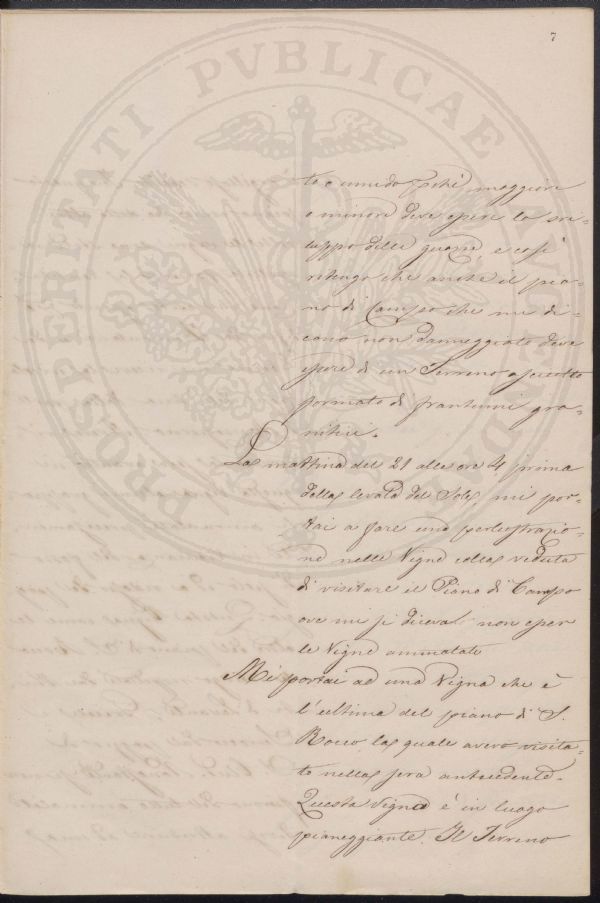 7
to o umido pchè maggiore
o minore deve essere lo svi-
luppo delle guarra, e così
ritengo che anche il pia-
no di Campo che mi di-
cono non danneggiato deve
essere di un Terreno asciutto
formato di frantumi gra-
nitici.
La mattina del 21 alle ore 4 prima
della levata del Sole, mi por-
tai a fare una perlustrazio-
ne nelle Vigne colla veduta
di visitare il Piano di Campo
ove mi si diceva non esser
le Vigne ammalate
Mi portai ad una Vigna che è
l'ultima del piano di S.
Rocco la quale avevo visita-
to nella sera antecedente.
Questa Vigna è in luogo
pianeggiante. Il Terreno
PROSPERITATI PVBLICAE AVGENDAE